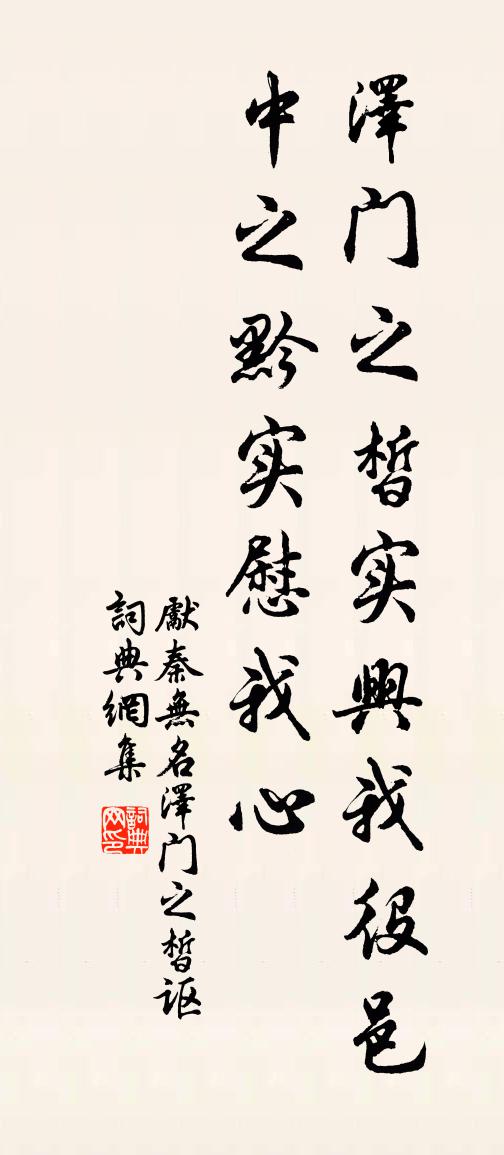 澤门之皙实興我役邑
中之黔实慰我心
獻秦無名澤门之皙讴
詞典網集
詞典网印